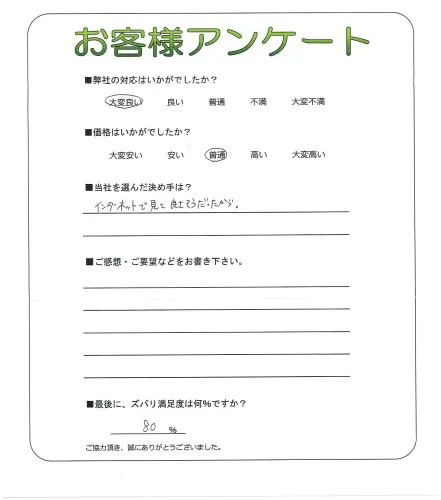 お客様アンケート
■弊社の対応はいかがでしたか？
大変良い 良い 普通 不満 大変不満
■価格はいかがでしたか？
大変安い 安い 普通 高い 大変高い
■当社を選んだ決め手は？
インターネットで見て良さそうだったから。
■ご感想・ご要望などをお書き下さい。
■最後に、ズバリ満足度は何％ですか？
80 ％
ご協力頂き、誠にありがとうございました。